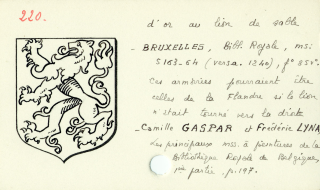 220.
d'or au lion de sable
- BRUXELLES, Bibl. Royale, ms.
5163-64 (versa. 1240), f° 115 v°.
Ces armoiries pourraient être
celles de la Flandre si le lion
n'était tourné vers la droite
- Camille GASPAR et Frédéric LYNA,
Les principaux mss. à peintures de la
Bibliothèque Royale de Belgique,
1re partie. p. 197.